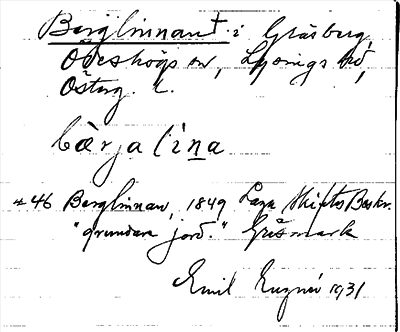 Berglinnan † i Gräsberg,
Ödeshögs sn, Lysings hd,
Österg. l.
bærja lìna
#46 Berglinnan, 1849 Laga Skiftes Beskr.
"grundare jord." Gråsmark
Emil 1931